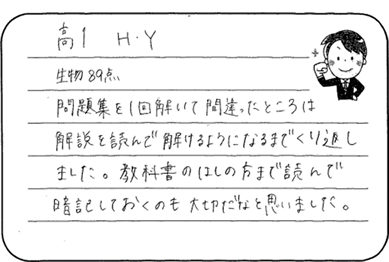 高1 H・Y
生物 89点
問題集を1回解いて間違ったところは
解説を読んで解けるようになるまでくり返し
ました。教科書のはしの方まで読んで
暗記しておくのも大切だなと思いました。